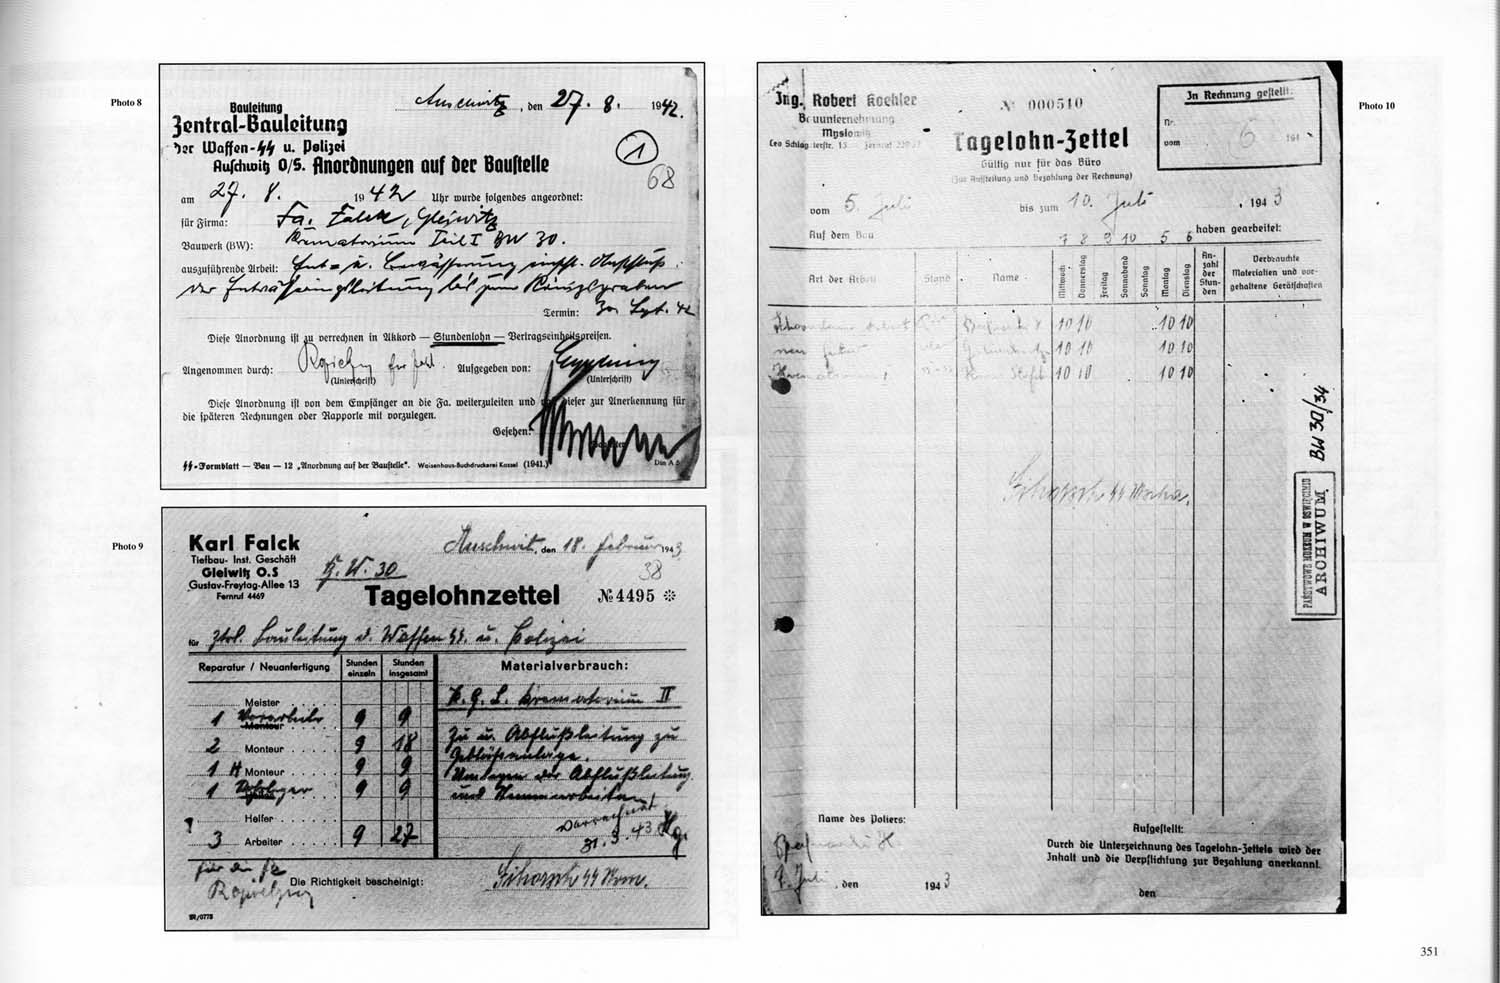 Photo 8
Bauleitung
Zentral-Bauleitung
der Waffen-SS u. Polizei
Auschwitz O/S.
Auschwitz, den 27. 8. 1942.
1
68
Anordnungen auf der Baustelle
am 27. 8. 1942 Uhr wurde folgendes angeordnet:
für Firma: Fa. Falck, Gleiwitz
Bauwerk (BW): Krematorium Teil I BW 30.
auszuführende Arbeit: Ent= u. Bewässerung einschl. Anschluß
der Entwässerungsleitung bis zum Königsgraben
Termin: 30 Sept. 42
Diese Anordnung ist zu verrechnen in Akkord — Stundenlohn — Vertragseinheitspreisen.
Angenommen durch: Aufgegeben von:
(Unterschrift) (Unterschrift)
Diese Anordnung ist von dem Empfänger an die Fa. weiterzuleiten und dieser zur Anerkennung für
die späteren Rechnungen oder Rapporte mit vorzulegen.
Gesehen:
SS-Formblatt — Bau — 12 „Anordnung auf der Baustelle". Waisenhaus-Buchdruckerei Kassel (1941.) Din A 5
Photo 9
Karl Falck
Tiefbau- Inst. Geschäft
Gleiwitz O.S
Gustav-Freytag-Allee 13
Fernruf 4469
Auschwitz, den 18. Februar 1943
38
B.W. 30
Tagelohnzettel № 4495
für Ztrl. Bauleitung d. Waffen SS. u. Polizei
Reparatur / Neuanfertigung Stunden einzeln Stunden insgesamt
Meister
1 Vorarbeiter 9 9
Monteur
2 Monteur 9 18
1 H Monteur 9 9
1 9 9
Helfer
3 Arbeiter 9 27
Materialverbrauch:
K. G. L. Krematorium II
Zu u. Abflußleitung zu
Gebläseanlage.
Umlegen der Abflußleitung
und Stemmarbeiten
verrechnet
31. 3. 43
für die Fa
Die Richtigkeit bescheinigt:
BR/0778
Photo 10
Ing. Robert Koehler
Bauunternehmung
Myslowitz
№ 000510
In Rechnung gestellt:
Nr.
vom 6 194
Tagelohn-Zettel
Gültig nur für das Büro
(zur Aufstellung und Bezahlung der Rechnung)
vom 5. Juli bis zum 10. Juli, 1943
Auf dem Bau haben gearbeitet:
7 8 9 10 5 6
Art der Arbeit Stand Name Mittwoch Donnerstag Freitag Sonnabend Sonntag Montag Dienstag Anzahl der Stunden Verbrauchte Materialien und vorgehaltene Gerätschaften
10 10 10 10
10 10 10 10
10 10 10 10
BW 30/34
PAŃSTWOWE MUZEUM W OŚWIĘCIMIU
ARCHIWUM
Name des Poliers:
Aufgestellt:
Durch die Unterzeichnung des Tagelohn-Zettels wird der
Inhalt und die Verpflichtung zur Bezahlung anerkannt.
7. Juli, den 1943
den
351